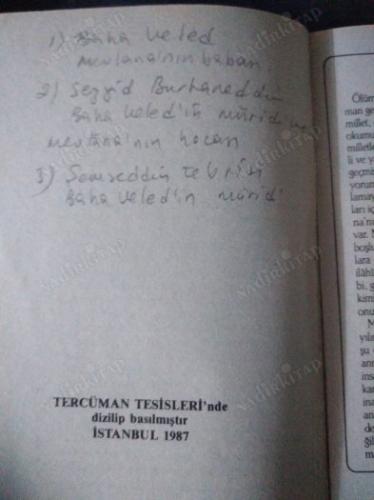 1) Baha Veled
Mevlana'nın babası
2) Seyyid Burhaneddin
Baha Veled'in müridi
Mevlana'nın hocası
3) Şemseddin Tebrizi
Baha Veled'in müridi
TERCÜMAN TESİSLERİ'nde
dizilip basılmıştır
İSTANBUL 1987
Ölüm
man ge
millet,
okumu
milletle
li ve ya
geçmi
yorum
lamay
ları iç
na'nı
var. M
boşlu
lara
ilâhî
bi, g
kimi
onu
M
yıla
şu
anı
insa
kar
ina
an
de
ğil
m
nadirkitap